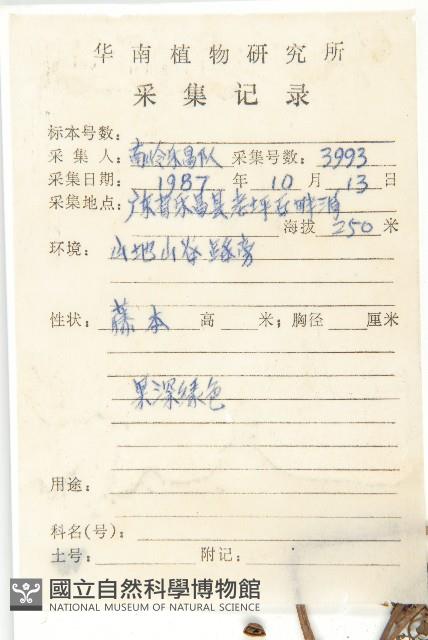 华南植物研究所
采集记录
标本号数:
采集人: 南岭乐昌队 采集号数: 3993
采集日期: 1987 年 10 月 13 日
采集地点: 广东省乐昌县老坪石
海拔 250 米
环境: 山地山谷 旁
性状: 藤本 高 米; 胸径 厘米
果深绿色
用途:
科名(号):
土号: 附记:
國立自然科學博物館
NATIONAL MUSEUM OF NATURAL SCIENCE